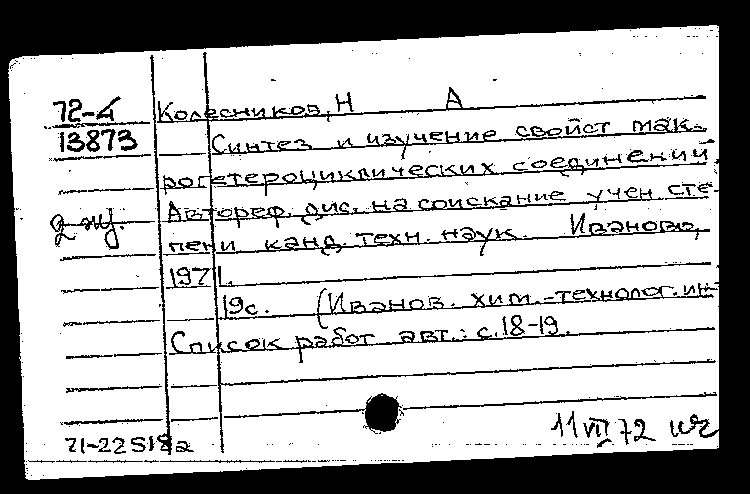 72-4 Колесников, Н А
13873 Синтез и изучение свойст мак-
рогетероциклических соединений.
Автореф. дис. на соискание учен. сте-
пени канд. техн. наук. Иваново,
1971.
19с. (Иванов. хим.-технолог. ин-
Список работ авт.: с. 18-19.
71-22518а
11 VII 72